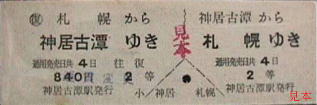 復 札幌から
神居古潭ゆき
通用発売日共4日 往復
840円 2等
神居古潭駅発行
見本
神居古潭から
札幌ゆき
通用発売日共4日
2等
小 神居 札幌
神居古潭駅発行